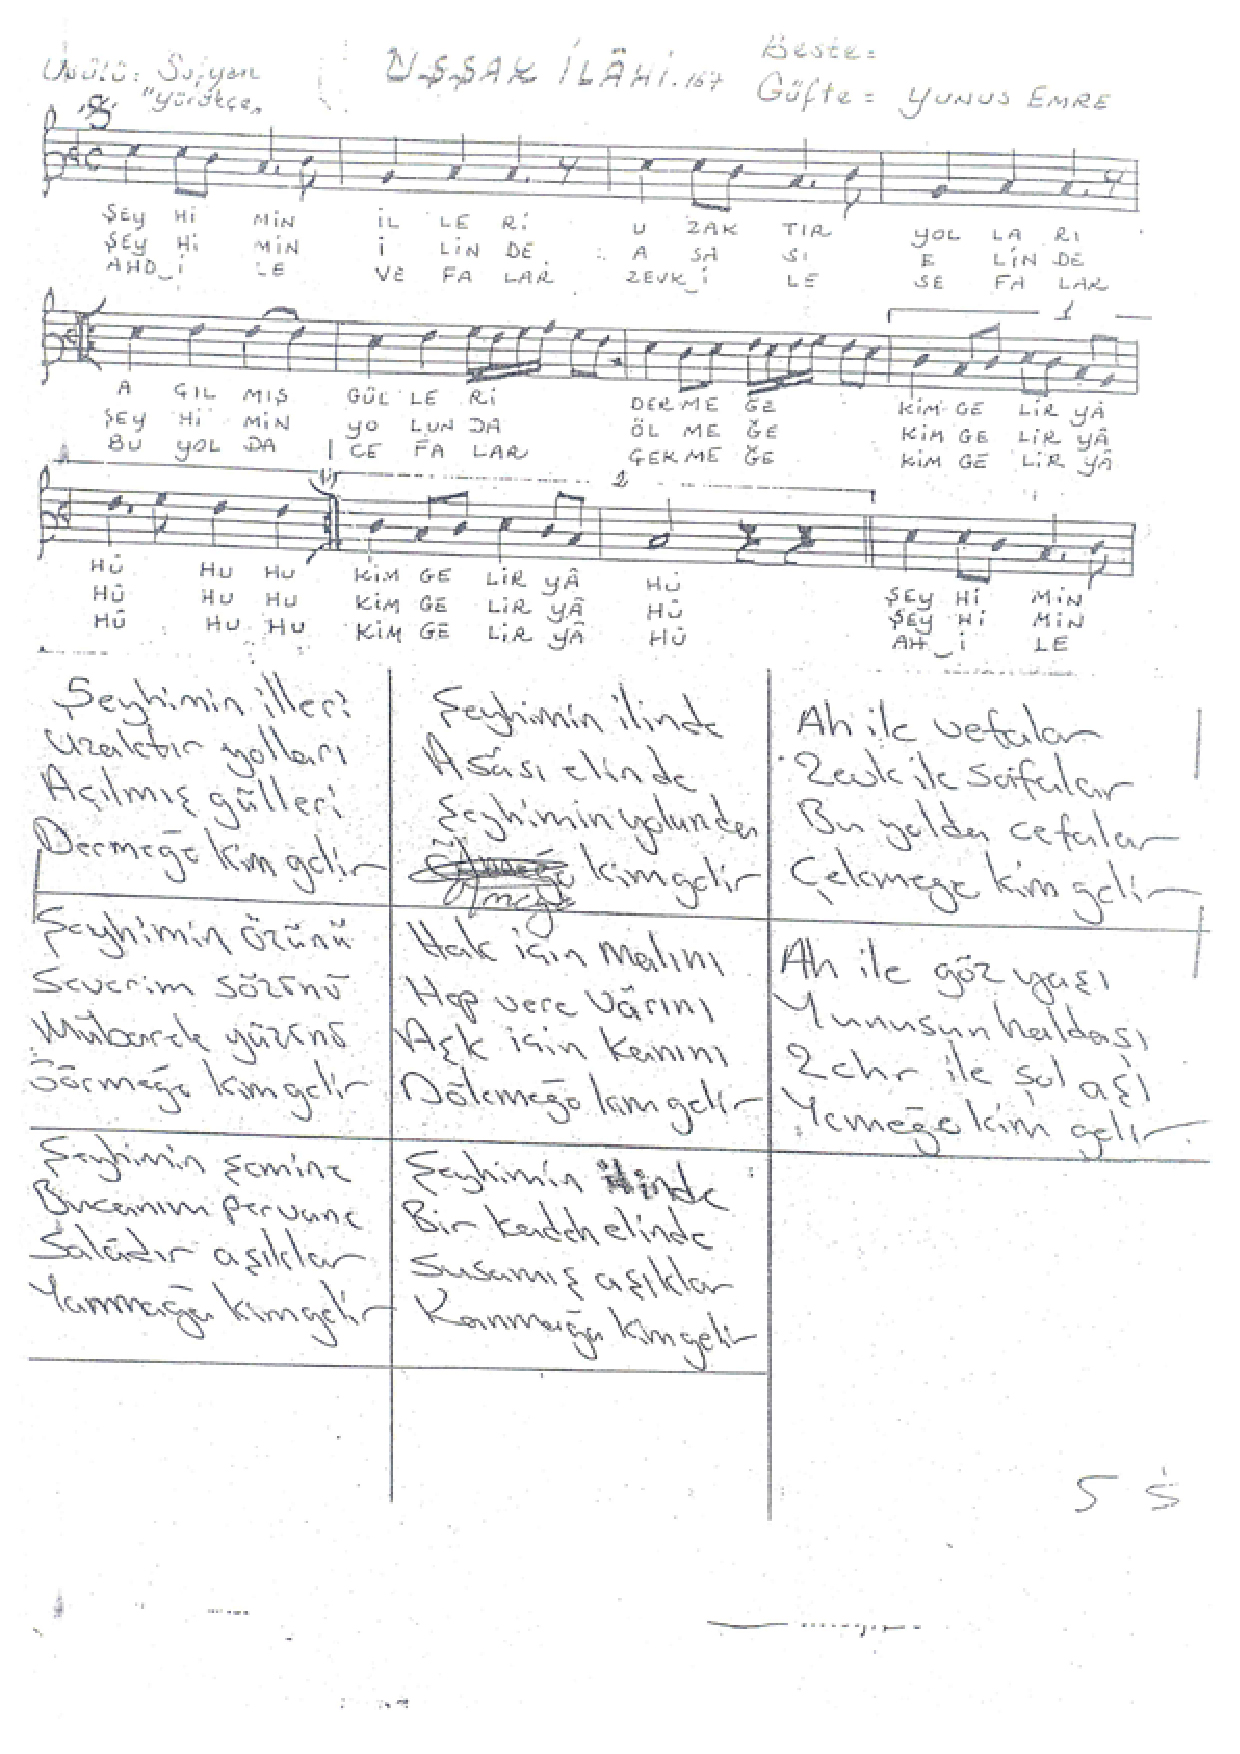 Usûlü: Sofyan
"Yürükçe"
UŞŞAK İLÂHİ. 167
Beste =
Güfte = YUNUS EMRE
ŞEY Hİ MİN İL LE Rİ U ZAK TIR YOL LA RI
ŞEY Hİ MİN İ LİN DE A SÂ SI E LİN DE
AHD İ LE VE FA LAR ZEVK İ LE SE FA LAR
1
A ÇIL MIŞ GÜL LE Rİ DER ME ĞE KİM GE LİR YÂ
ŞEY Hİ MİN YO LUN DA ÖL ME ĞE KİM GE LİR YÂ
BU YOL DA CE FA LAR ÇEK ME ĞE KİM GE LİR YÂ
2
HÛ HU HU KİM GE LİR YÂ HÛ ŞEY Hİ MİN
HÛ HU HU KİM GE LİR YÂ HÛ ŞEY Hİ MİN
HÛ HU HU KİM GE LİR YÂ HÛ AH İ LE
Şeyhimin illeri
Uzaktır yolları
Açılmış gülleri
Dermeğe kim gelir
Şeyhimin ilinde
Asâsı elinde
Şeyhimin yolunda
ölmeğe kim gelir
Ah ile vefalar
Zevk ile saifalar
Bu yolda cefalar
Çekmeğe kim gelir
Şeyhimin özünü
Severim sözünü
Mübarek yüzünü
Görmeğe kim gelir
Hak için malını
Hep vere vârını
Aşk için kanını
Dökmeğe kim gelir
Ah ile göz yaşı
Yunusun haldaşı
Zehr ile şol aşı
Yemeğe kim gelir
Şeyhimin şemine
Bu canım pervane
Salâdır aşıklar
Yanmağa kim gelir
Şeyhimin ilinde
Bir kadeh elinde
Susamış aşıklar
Kanmağa kim gelir
5